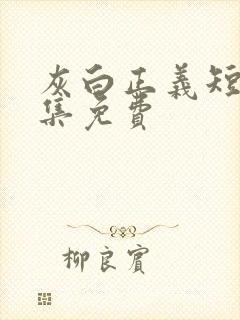 灰白正義短
集免費
柳良賓